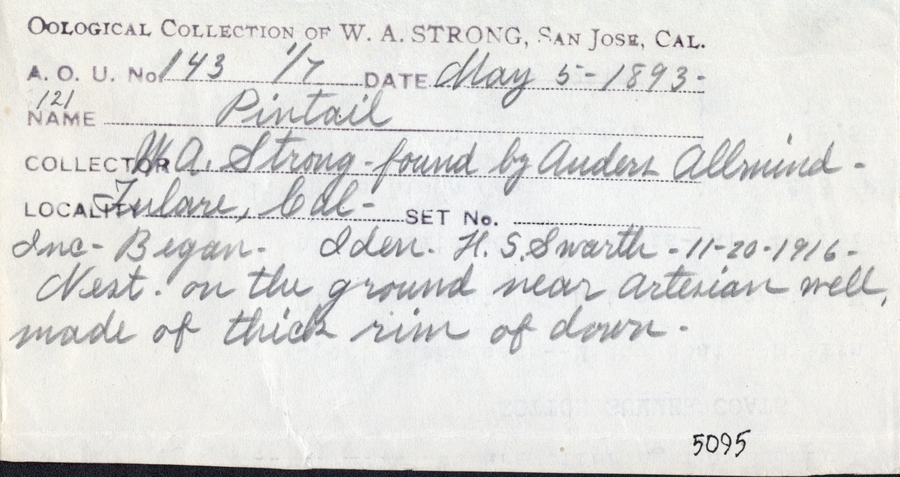 OOLOGICAL COLLECTION OF W. A. STRONG, SAN JOSE, CAL.
A. O. U. No. 143 1/7 DATE May 5-1893-
121
NAME Pintail
COLLECTOR W.A. Strong-found by Anders Allmind-
LOCALITY Tulare, Cal- SET No.
Inc- Began- Iden- H.S. Swarth-11-20-1916-
Nest- on the ground near artesian well,
made of thick rim of down-
5095